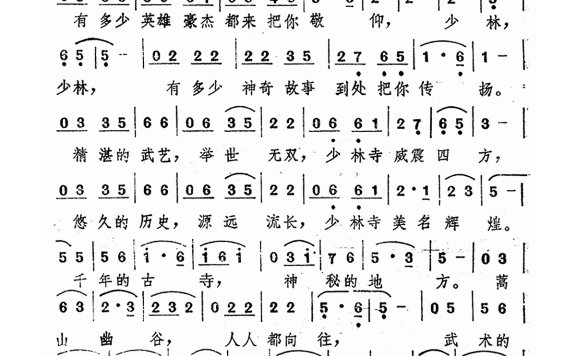 有多少英雄豪杰都来把你敬仰，少林，
6 5 5 - | 02 22 | 22 35 | 27 65 | 1·6 | 1 -
少林，有多少神奇故事到处把你传扬。
03 35 | 66 | 06 35 | 22 | 06 61 | 27 | 65 | 3 -
精湛的武艺，举世无双，少林寺威震四方，
03 35 | 66 | 06 35 | 22 | 06 61 | 2·1 | 23 | 5 -
悠久的历史，源远流长，少林寺美名辉煌。
55 | 56 | i·6 | i6i | 03i | 76 | 5·5 | 5 - | 03
千年的古寺，神秘的地方。嵩
63 | 2·3 | 232 | 022 | 22 | 5·6 | 5 - | 05 | 56
山幽谷，人人都向往，武术的